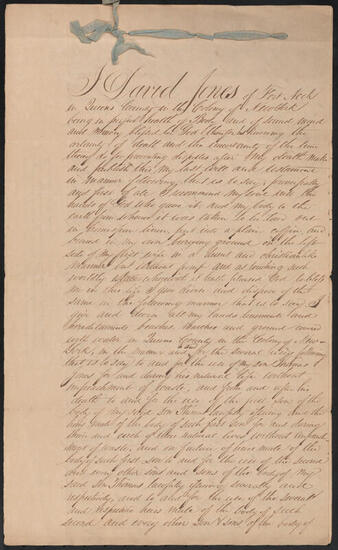 I David Jones of Fort Neck
in Queens County in the Colony of New York
being in perfect health of Body and of sound mind
and Memory blessed be God therefor knowing the
certainty of death and the uncertainty of the time
thereof for preventing disputes after my death make
and publish this my last Will and testament
in manner following that is to say, principally
and first of all I recommend my Soul into the
hands of God who gave it and my body to the
earth from whence it was taken to be laid out
in linen put into a plain coffin and
buried in my own burying ground on the left
side of my first wife in a decent and christianlike
manner but without pomp and as touching such
worldly estate wherewith it hath pleased God to bless
me in this life I give devise and dispose of the
same in the following manner that is to say I
give and devise all my lands tenements and
hereditaments beaches, Marshes and ground covered
with water in Queens County in the Colony of New
York, in the manner and for the several uses following
that is to say to and for the use of my son Thomas
Jones for and during his natural life without
impeachment of waste, and from and after his
death to and for the use of the first son of the
body of my said Son Thomas lawfully issuing and the
heirs male of the body of such first Son for and during
their and each of their natural lives without impeach
ment of waste, and on failure of heirs male of the
body of such first son to and for the use of the second
and every other sons and sons of the body of my
said Son Thomas lawfully issuing severally and
respectively, and to and for the use of the several
and respective heirs male of the body of such
second and every other Son & sons of the body of